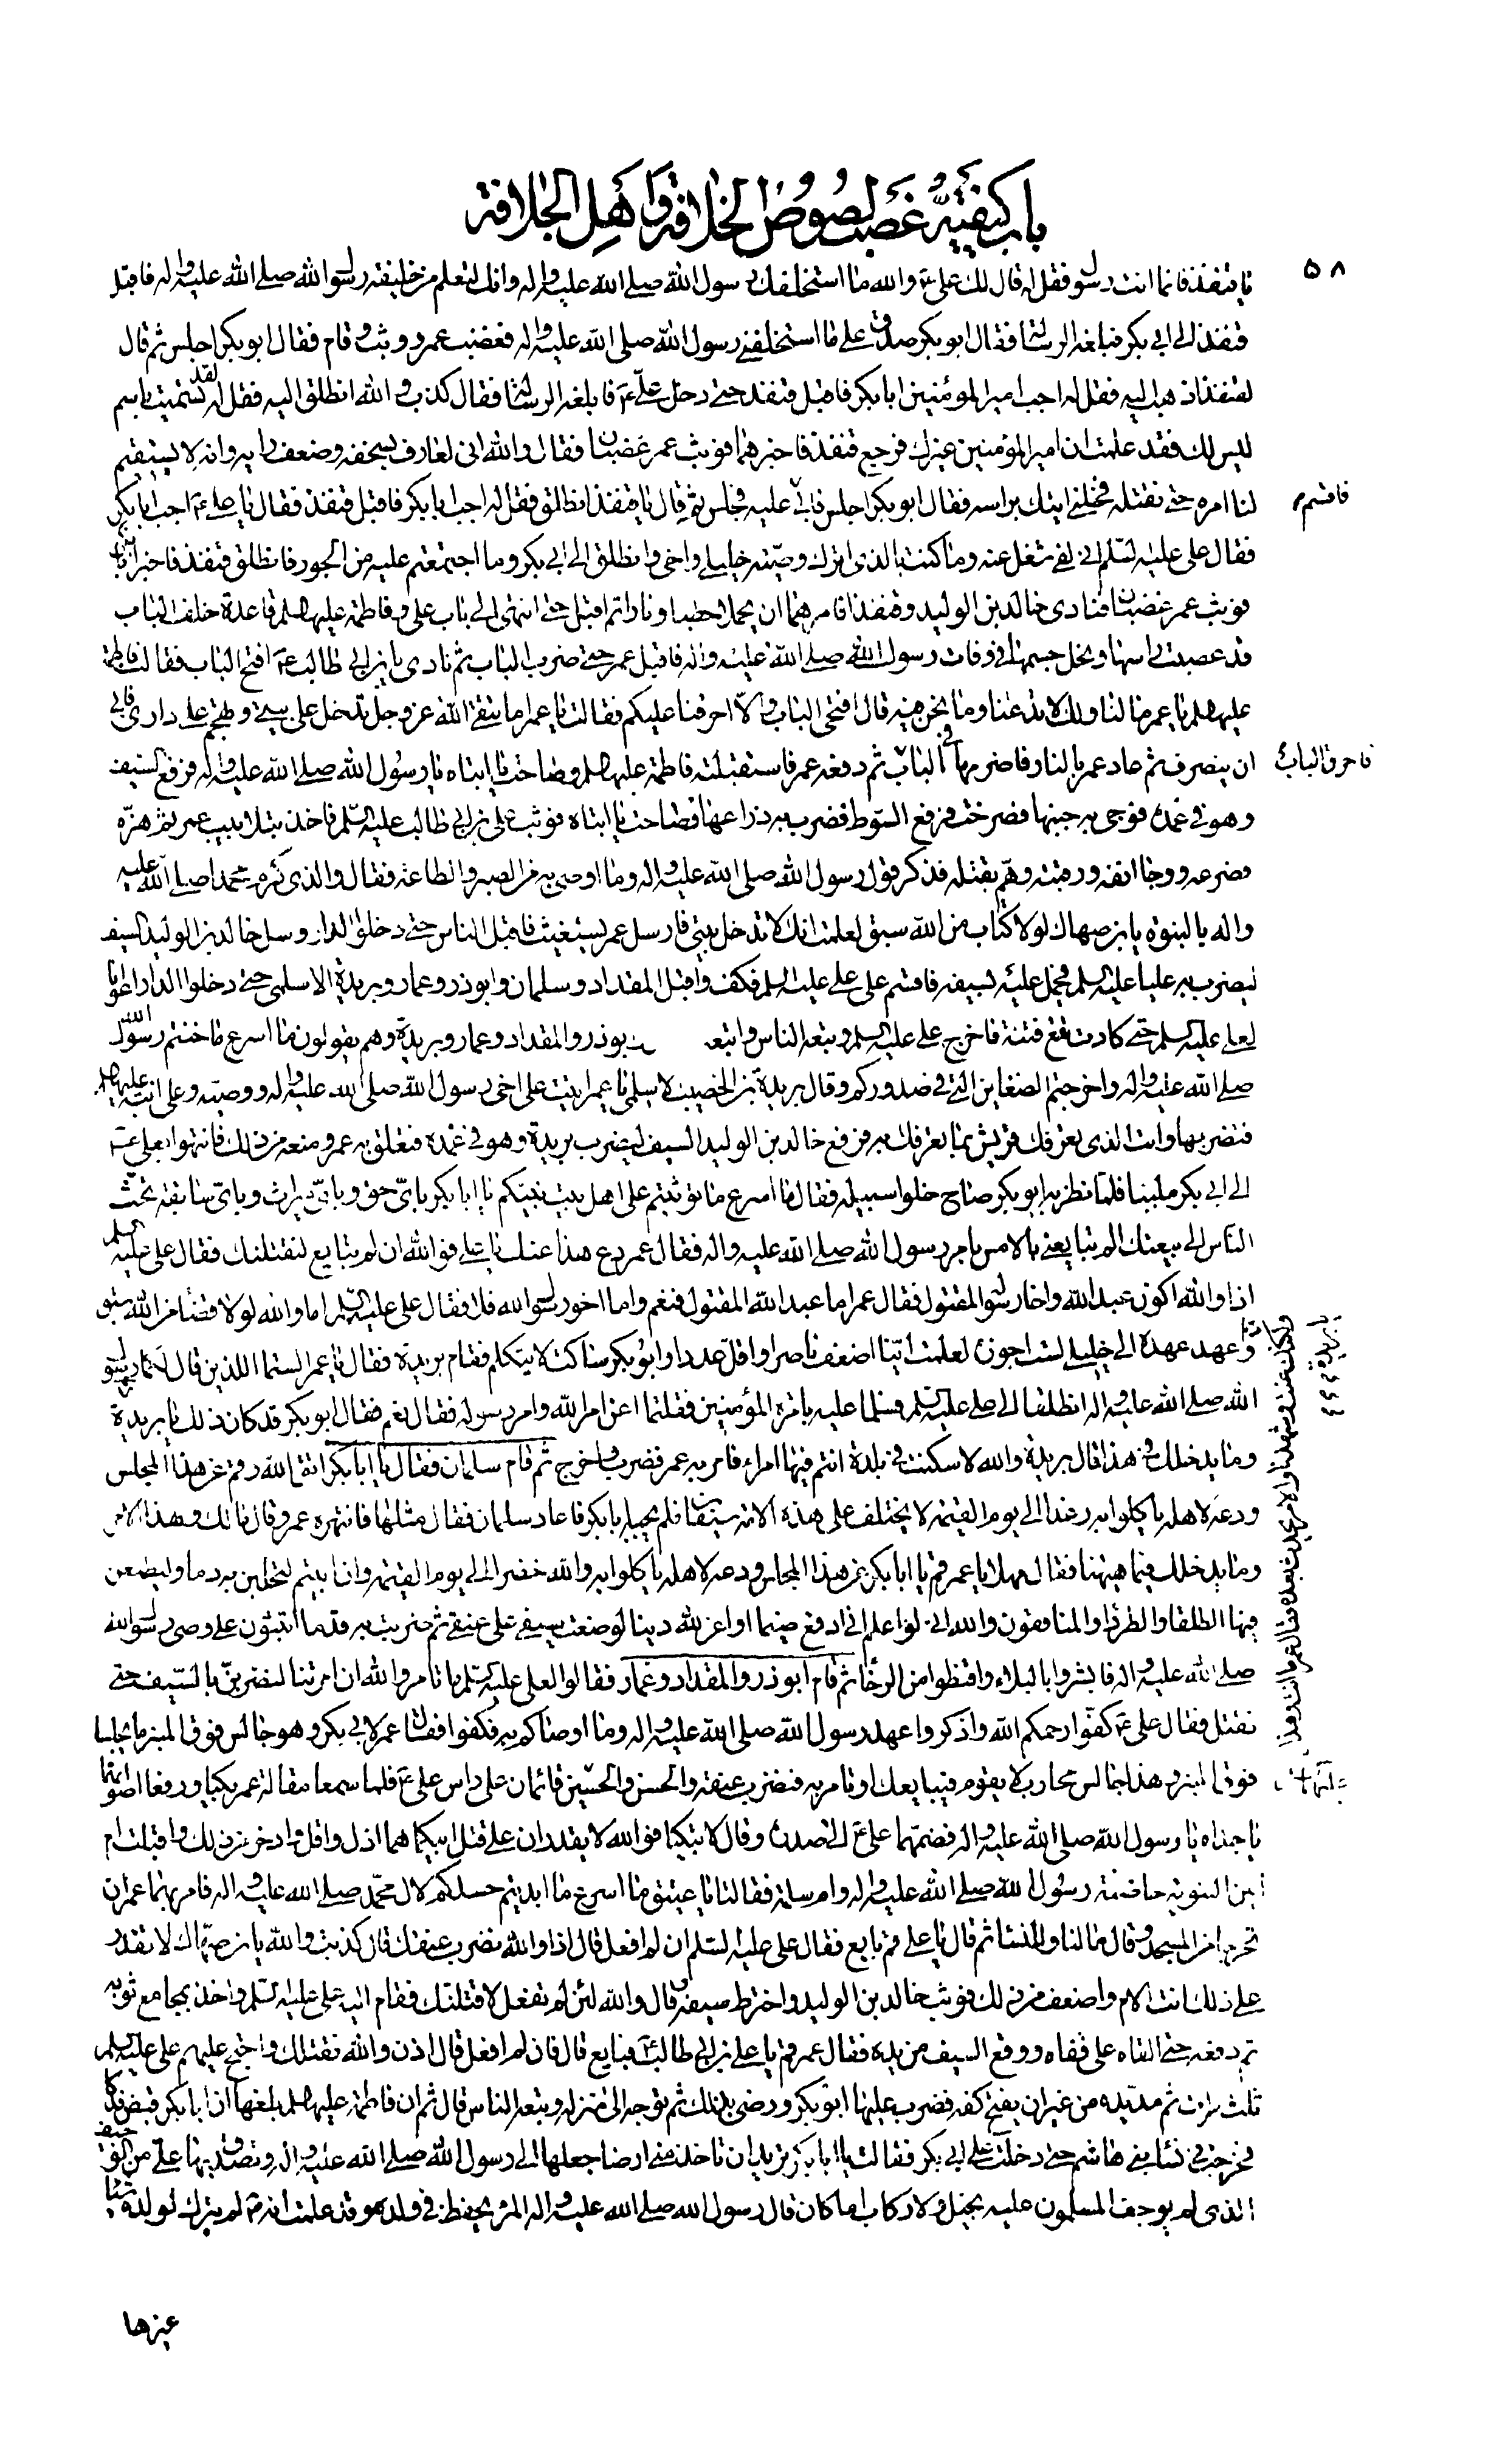 باب كيفيّة غصب لصوص الخلافة واهل الجلافة
٥٨
يا قنفذ فانما انت رسول فقل له قال لك على ع والله ما استخلفك رسول الله صلى الله عليه واله وانك لتعلم من خليفة رسول الله صلى الله عليه واله فاقبل
قنفذ الى ابى بكر فبلغه الرسالة فقال ابو بكر صدق على ما استخلفنى رسول الله صلى الله عليه واله فغضب عمر ووثب وقام فقال ابو بكر اجلس ثم قال
لقنفذ اذهب اليه فقل له اجب امير المؤمنين ابا بكر فاقبل قنفذ حتى دخل على علىّ ع فابلغه الرسالة فقال كذب والله انطلق اليه فقل له لقد تسميت باسم
ليس لك فقد علمت ان امير المؤمنين غيرك فرجع قنفذ فاخبرهما فوثب عمر غضبان فقال والله انى لعارف بسخفه وضعف رايه وانه لا يستقيم
لنا امره حتى نقتله فخلنى اتيك براسه فقال ابو بكر اجلس فابى عليه فجلس ثم قال يا قنفذ انطلق فقل له اجب ابا بكر فاقبل قنفذ فقال يا على ع اجب ابا بكر
فاقسم
فقال على عليه السلم انى لفى شغل عنه وما كنت بالذى اترك وصيّة خليلى واخى وانطلق الى ابى بكر وما اجتمعتم عليه من الجور فانطلق قنفذ فاخبر ابا بكر
فوثب عمر غضبان فنادى خالد بن الوليد وقنفذ فامرهما ان يحملا حطبا ونارا ثم اقبل حتى انتهى الى باب على وفاطمة عليها السلم قاعدة خلف الباب
قد عصبت راسها ونحل جسمها فى وفات رسول الله صلى الله عليه واله فاقبل عمر حتى ضرب الباب ثم نادى يا بن ابى طالب ع افتح الباب فقالت فاطمة
عليها السلم يا عمر ما لنا ولك لا تدعنا وما نحن فيه قال افتحى الباب والّا احرقنا عليكم فقالت يا عمر اما تتقى الله عز وجل تدخل على بيتى وتهجم على دارى فابى
ان ينصرف ثم عاد عمر بالنار فاضرمها فى الباب ثم دفعه عمر فاستقبلته فاطمة عليها السلم وصاحت يا ابتاه يا رسول الله صلى الله عليه واله فرفع السيف
فاحرق الباب
وهو فى غمده فوجى به جنبها فصرخت فرفع السوط فضرب به ذراعها فصاحت يا ابتاه فوثب على بن ابى طالب عليه السّلم فاخذ بتلابيب عمر ثم هزّه
فصرعه ووجا انفه ورقبته وهمّ بقتله فذكر قول رسول الله صلى الله عليه واله وما اوصى به من الصبر والطاعة فقال والذى كرّم محمدا صلى الله عليه
واله بالنبوة يا بن صهاك لولا كتاب من الله سبق لعلمت انك لا تدخل بيتى فارسل عمر يستغيث فاقبل الناس حتى دخلوا الدار وسل خالد بن الوليد السيف
ليضرب به عليا عليه السلم فحمل عليه بسيفه فاقسم على على عليه السلم فكف واقبل المقداد وسلمان وابوذر وعمار وبريدة الاسلمى حتى دخلوا الدار اعوانا
لعلى عليه السلم حتى كادت تقع فتنة فاخرج على عليه السلم وتبعه الناس واتبعه بوذر والمقداد وعمار وبريدة وهم يقولون ما اسرع ما خنتم رسول الله
صلى الله عليه واله واخرجتم الضغاين التى فى صدوركم وقال بريدة بن الخصيب الاسلمى يا عمر اتيت على اخى رسول الله صلى الله عليه واله ووصيه وعلى ابنته عليها السلم
فتضربها وانت الذى يعرفك قريش بما يعرفك به فرفع خالد بن الوليد السيف ليضرب بريدة وهو فى غمده فتعلق به عمر ومنعه من ذلك فانتهوا بعلى ع
الى ابى بكر ملببا فلما نظر به ابو بكر صاح خلوا سبيله فقال ما اسرع ما توثبتم على اهل بيت نبيكم يا ابا بكر باىّ حق وباىّ ميراث وباىّ سابقة تحثّ
الناس الى بيعتك الم تبايعنى بالامس بامر رسول الله صلى الله عليه واله فقال عمر دع هذا عنك يا على فوالله ان لم تبايع لنقتلنك فقال على عليه السلم
اذا والله اكون عبد الله واخا رسول المقتول فقال عمر اما عبد الله المقتول فنعم واما اخو رسول الله فلا فقال على عليه السّلم اما والله لولا قضاء من الله سبق
وعهد عهده الى خليلى لست اجوزه لعلمت ايّنا اضعف ناصرا واقل عددا وابو بكر ساكت لا يتكلم فقام بريدة فقال يا عمر الستما اللذين قال لكما رسول
الله صلى الله عليه واله انطلقا الى على عليه السّلم فسلما عليه بامرة المؤمنين فقلتما اعن امر الله وامر رسوله فقال نعم فقال ابو بكر قد كان ذلك يا بريدة
وما يدخلك فى هذا قال بريدة والله لا سكنت فى بلدة انتم فيها امراء فامر به عمر فضرب واخرج ثم قام سلمان فقال يا ابا بكر اتق الله وقم عن هذا المجلس
ودعه لاهله ياكلوا به رغدا الى يوم القيمة لا يختلف على هذه الامة سيفان فلم يجبه ابا بكر فاعاد سلمان فقال مثلها فانتهره عمر وقال مالك وهذا الامر
وما يدخلك فيما هيهنا فقال مهلا يا عمر قم يا ابا بكر عن هذا المجلس ودعه لاهله ياكلوا به والله خضرا الى يوم القيمة وان ابيتم لتحلبن به دما وليطمعن
فيها الطلقا والطردا والمنافقون والله انى لو اعلم انى ادفع ضيما او اعز لله دينا لوضعت سيفى على عنقى ثم ضربت به قدما اتثبون على وصى رسول الله
صلى الله عليه واله فابشروا بالبلاء واقنطوا من الرخا ثم قام ابوذر والمقداد وعمار فقالوا لعلى عليه السّلم ما تامر والله ان امرتنا لنضربنّ بالسّيف حتى
نقتل فقال على ع كفّوا رحمكم الله واذكروا عهد رسول الله صلى الله عليه واله وما اوصاكم به فكفوا فقال عمر لابى بكر وهو جالس فوق المنبر ما يجلسك
فوق المنبر وهذا جالس محارب لا يقوم فيبايعك او تامر به فنضرب عنقه والحسن والحسين قائمان على راس على ع فلما سمعا مقالة عمر بكيا ورفعا اصواتهما
يا جداه يا رسول الله صلى الله عليه واله فضمّهما على ع الى صدره وقال لا تبكيا فوالله لا يقدران على قتل ابيكما هما اذل واقل وادخر من ذلك واقبلت ام
ايمن النوبية حاضنة رسول الله صلى الله عليه واله وام سلمة فقالتا يا عتيق ما اسرع ما ابديتم حسدكم لال محمد صلى الله عليه واله فامر بهما عمر ان
تخرجا من المسجد وقال ما لنا وللنسا ثم قال يا على قم بايع فقال على عليه السّلم ان لم افعل قال اذا والله نضرب عنقك قال كذبت والله يا بن صهاك لا تقدر
على ذلك انت الام واضعف من ذلك فوثب خالد بن الوليد واخترط سيفه وقال والله لئن لم تفعل لاقتلنك فقام اليه على عليه السّلم واخذ بمجامع ثوبه
ثم دفعه حتى القاه على قفاه ووقع السيف من يده فقال عمر قم يا على بن ابى طالب ع فبايع قال فان لم افعل قال اذن والله نقتلك واحتج عليهم على عليه السلم
ثلث مرات ثم مدّ يده من غير ان يفتح كفه فضرب عليها ابو بكر ورضى بذلك ثم توجه الى منزله وتبعه الناس قال ثم ان فاطمة عليها السلم بلغها ان ابا بكر قبض فدك
فخرجت فى نسا بنى هاشم حتى دخلت على ابى بكر فقالت يا ابا بكر تريد ان تاخذ منى ارضا جعلها لى رسول الله صلى الله عليه واله وتصدق بها علىّ من الوجيف
الذى لم يوجف المسلمون عليه بخيل ولا ركاب اما كان قال رسول الله صلى الله عليه واله المرء يحفظ فى ولده وقد علمت انه ص لم يترك لولده شيئا
غيرها